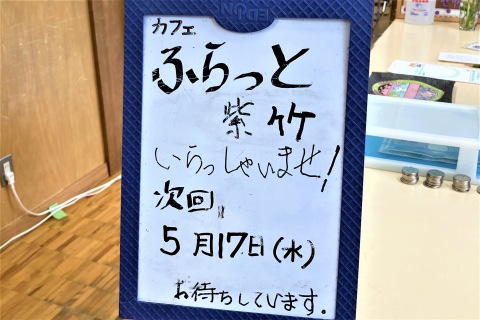 カフェ
ふらっと
紫竹
いらっしゃいませ!
次回
5月17日(水)
お待ちしています.